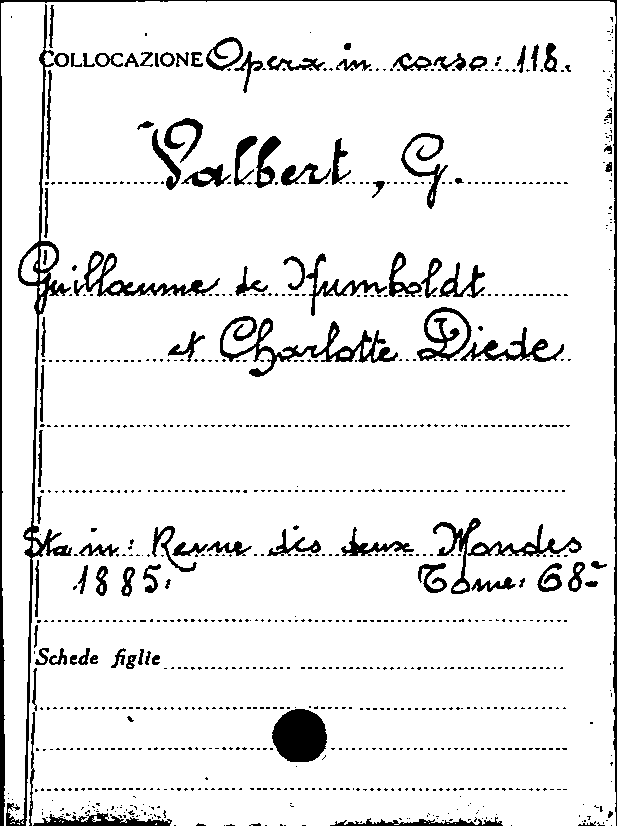 COLLOCAZIONE Opera in corso: 118.
Valbert, G.
Guillaume de Humboldt
et Charlotte Diede
Sta in: Revue des deux Mondes
1885. Tome: 68º
Schede figlie